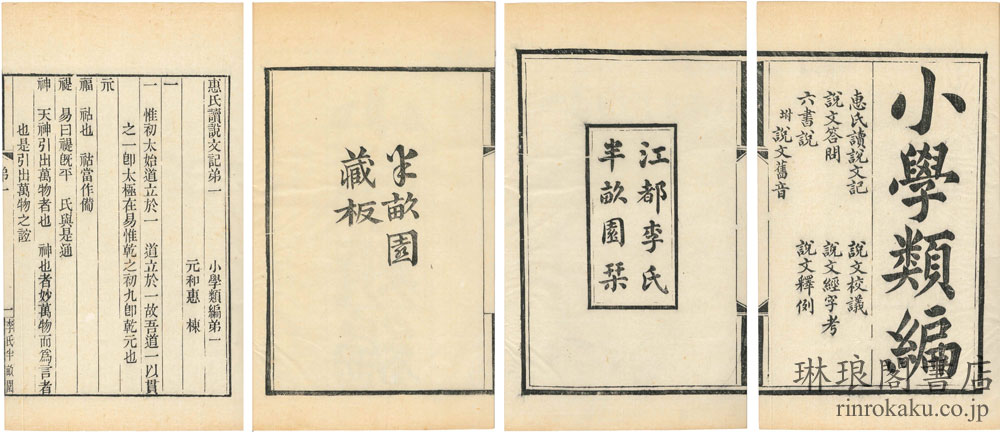 小學類編
惠氏讀說文記 說文校議
說文答問 說文經字考
六書說 說文釋例
坿說文舊音
江都李氏
半畝園栞
半畝園
藏板
惠氏讀說文記弟一 小學類編弟一
元和惠 棟
一
一 惟初太始道立於一 道立於一故吾道一以貫
之一卽太極在易惟乾之初九卽乾元也
示
福 祜也 祜當作備
禔 易曰禔旣平 氏與是通
神 天神引出萬物者也 神也者妙萬物而爲言者
也是引出萬物之誼
弟一
一
李氏半畝園
琳琅閣書店
rinrokaku.co.jp